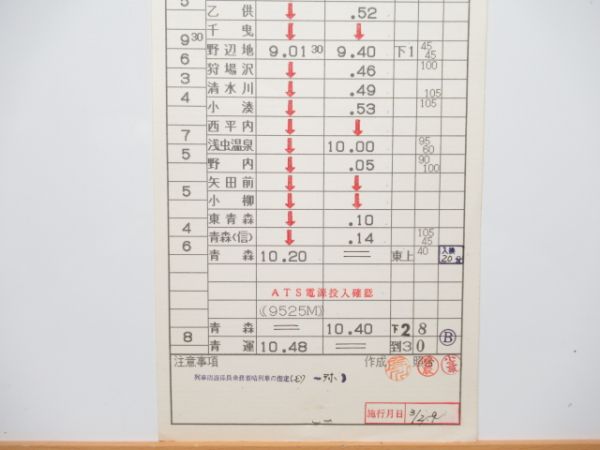 5 乙供 ↓ .52
千曳 ↓ ↓
9 30 野辺地 9.01 30 9.40 下1 45 45
6 狩場沢 ↓ .46 100
3 清水川 ↓ .49
4 小湊 ↓ .53 105 105
西平内 ↓ ↓
7 浅虫温泉 ↓ 10.00 95 60
5 野内 ↓ .05 90 100
矢田前 ↓ ↓
5 小柳 ↓ ↓
東青森 ↓ .10
4 青森(信) ↓ .14 105 45
6 青森 10.20 == 東上 40 入換 20分
ATS電源投入確認
《9525M》
青森 == 10.40 下2 8
8 青運 10.48 == 到3 0 B
注意事項 作成 照合
施行月日 3/2.9